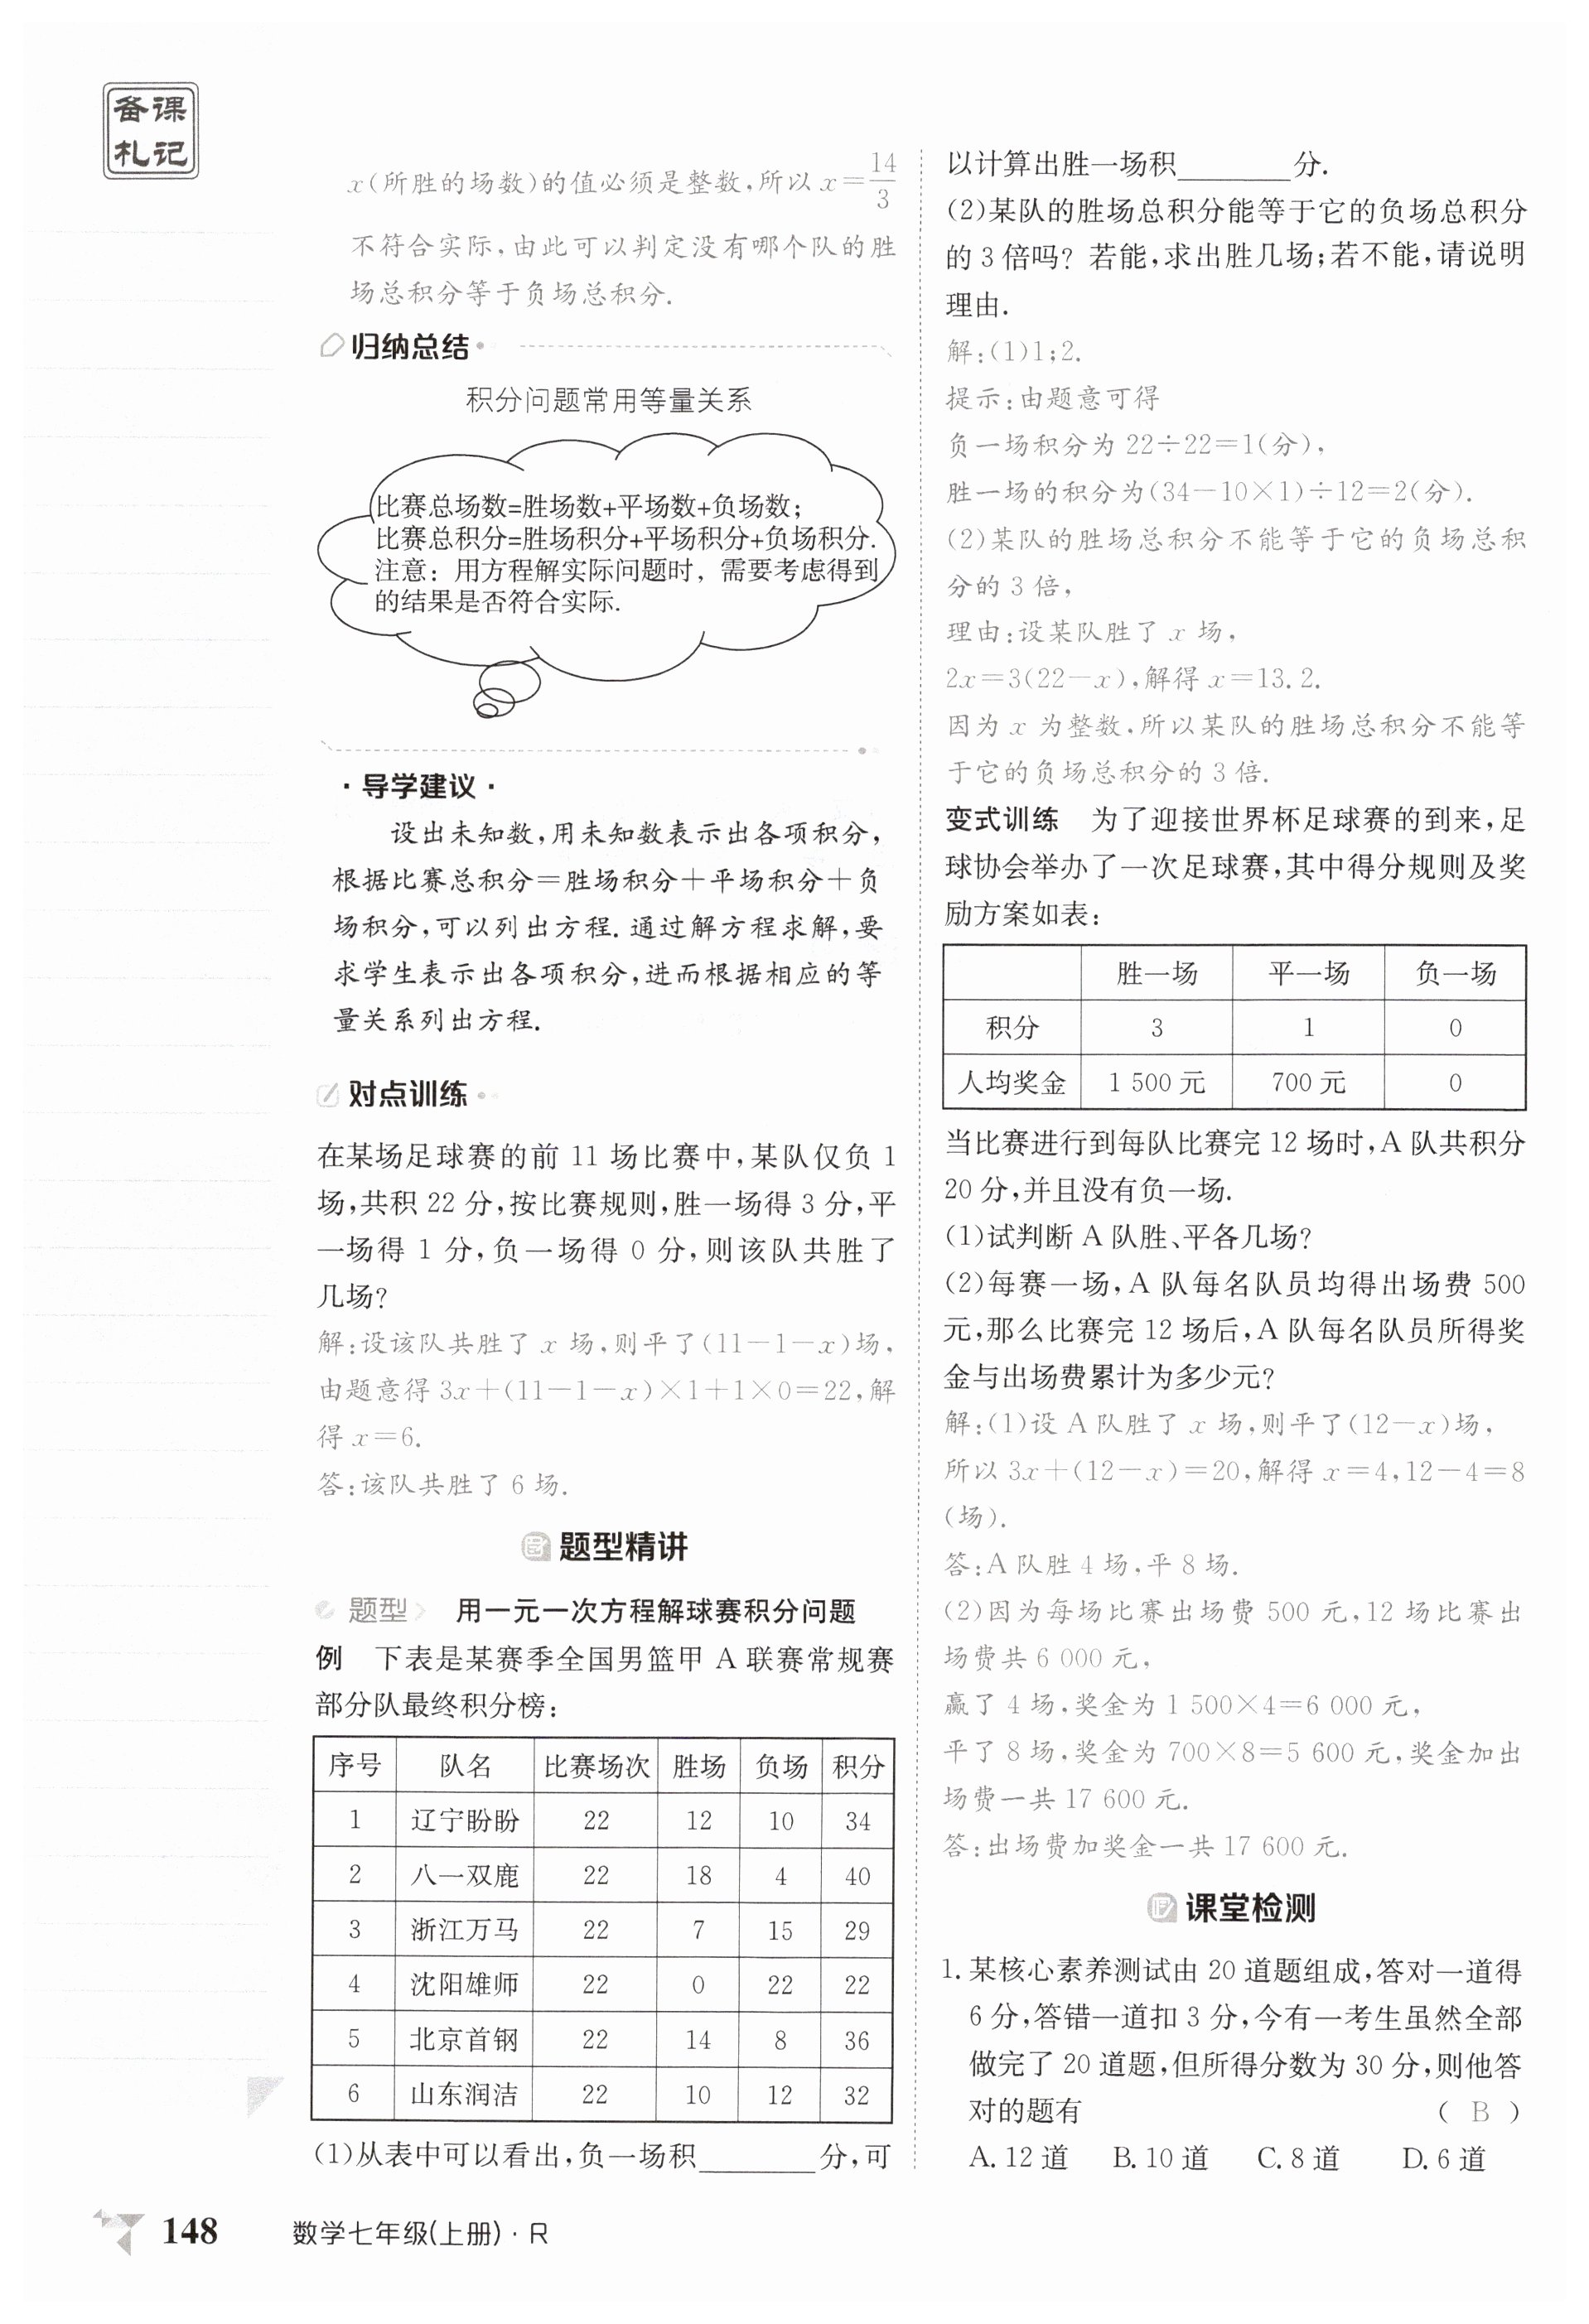 备课
札记
x(所胜的场数)的值必须是整数,所以 x=14/3
不符合实际,由此可以判定没有哪个队的胜
场总积分等于负场总积分.
归纳总结
积分问题常用等量关系
比赛总场数=胜场数+平场数+负场数；
比赛总积分=胜场积分+平场积分+负场积分.
注意：用方程解实际问题时，需要考虑得到
的结果是否符合实际.
·导学建议·
设出未知数,用未知数表示出各项积分,
根据比赛总积分=胜场积分+平场积分+负
场积分,可以列出方程.通过解方程求解,要
求学生表示出各项积分,进而根据相应的等
量关系列出方程.
对点训练
在某场足球赛的前 11 场比赛中,某队仅负 1
场,共积 22 分,按比赛规则,胜一场得 3 分,平
一场得 1 分,负一场得 0 分,则该队共胜了
几场?
解:设该队共胜了 x 场,则平了(11-1-x)场,
由题意得 3x+(11-1-x)×1+1×0=22,解
得 x=6.
答:该队共胜了 6 场.
题型精讲
题型 用一元一次方程解球赛积分问题
例 下表是某赛季全国男篮甲 A 联赛常规赛
部分队最终积分榜:
序号 队名 比赛场次 胜场 负场 积分
1 辽宁盼盼 22 12 10 34
2 八一双鹿 22 18 4 40
3 浙江万马 22 7 15 29
4 沈阳雄师 22 0 22 22
5 北京首钢 22 14 8 36
6 山东润洁 22 10 12 32
(1)从表中可以看出,负一场积________分,可
以计算出胜一场积________分.
(2)某队的胜场总积分能等于它的负场总积分
的 3 倍吗? 若能,求出胜几场;若不能,请说明
理由.
解:(1)1;2.
提示:由题意可得
负一场积分为 22÷22=1(分),
胜一场的积分为(34-10×1)÷12=2(分).
(2)某队的胜场总积分不能等于它的负场总积
分的 3 倍,
理由:设某队胜了 x 场,
2x=3(22-x),解得 x=13.2.
因为 x 为整数,所以某队的胜场总积分不能等
于它的负场总积分的 3 倍.
变式训练 为了迎接世界杯足球赛的到来,足
球协会举办了一次足球赛,其中得分规则及奖
励方案如表:
胜一场 平一场 负一场
积分 3 1 0
人均奖金 1 500 元 700 元 0
当比赛进行到每队比赛完 12 场时,A 队共积分
20 分,并且没有负一场.
(1)试判断 A 队胜、平各几场?
(2)每赛一场,A 队每名队员均得出场费 500
元,那么比赛完 12 场后,A 队每名队员所得奖
金与出场费累计为多少元?
解:(1)设 A 队胜了 x 场,则平了(12-x)场,
所以 3x+(12-x)=20,解得 x=4,12-4=8
(场).
答:A 队胜 4 场,平 8 场.
(2)因为每场比赛出场费 500 元,12 场比赛出
场费共 6 000 元,
赢了 4 场,奖金为 1 500×4=6 000 元,
平了 8 场,奖金为 700×8=5 600 元,奖金加出
场费一共 17 600 元.
答:出场费加奖金一共 17 600 元.
课堂检测
1. 某核心素养测试由 20 道题组成,答对一道得
6 分,答错一道扣 3 分,今有一考生虽然全部
做完了 20 道题,但所得分数为 30 分,则他答
对的题有 ( B )
A. 12 道 B. 10 道 C. 8 道 D. 6 道
148 数学七年级(上册)·R